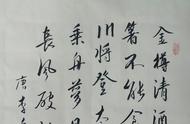 金樽清酒
箸不能食
川将登太
乘舟夢
長风破
唐李